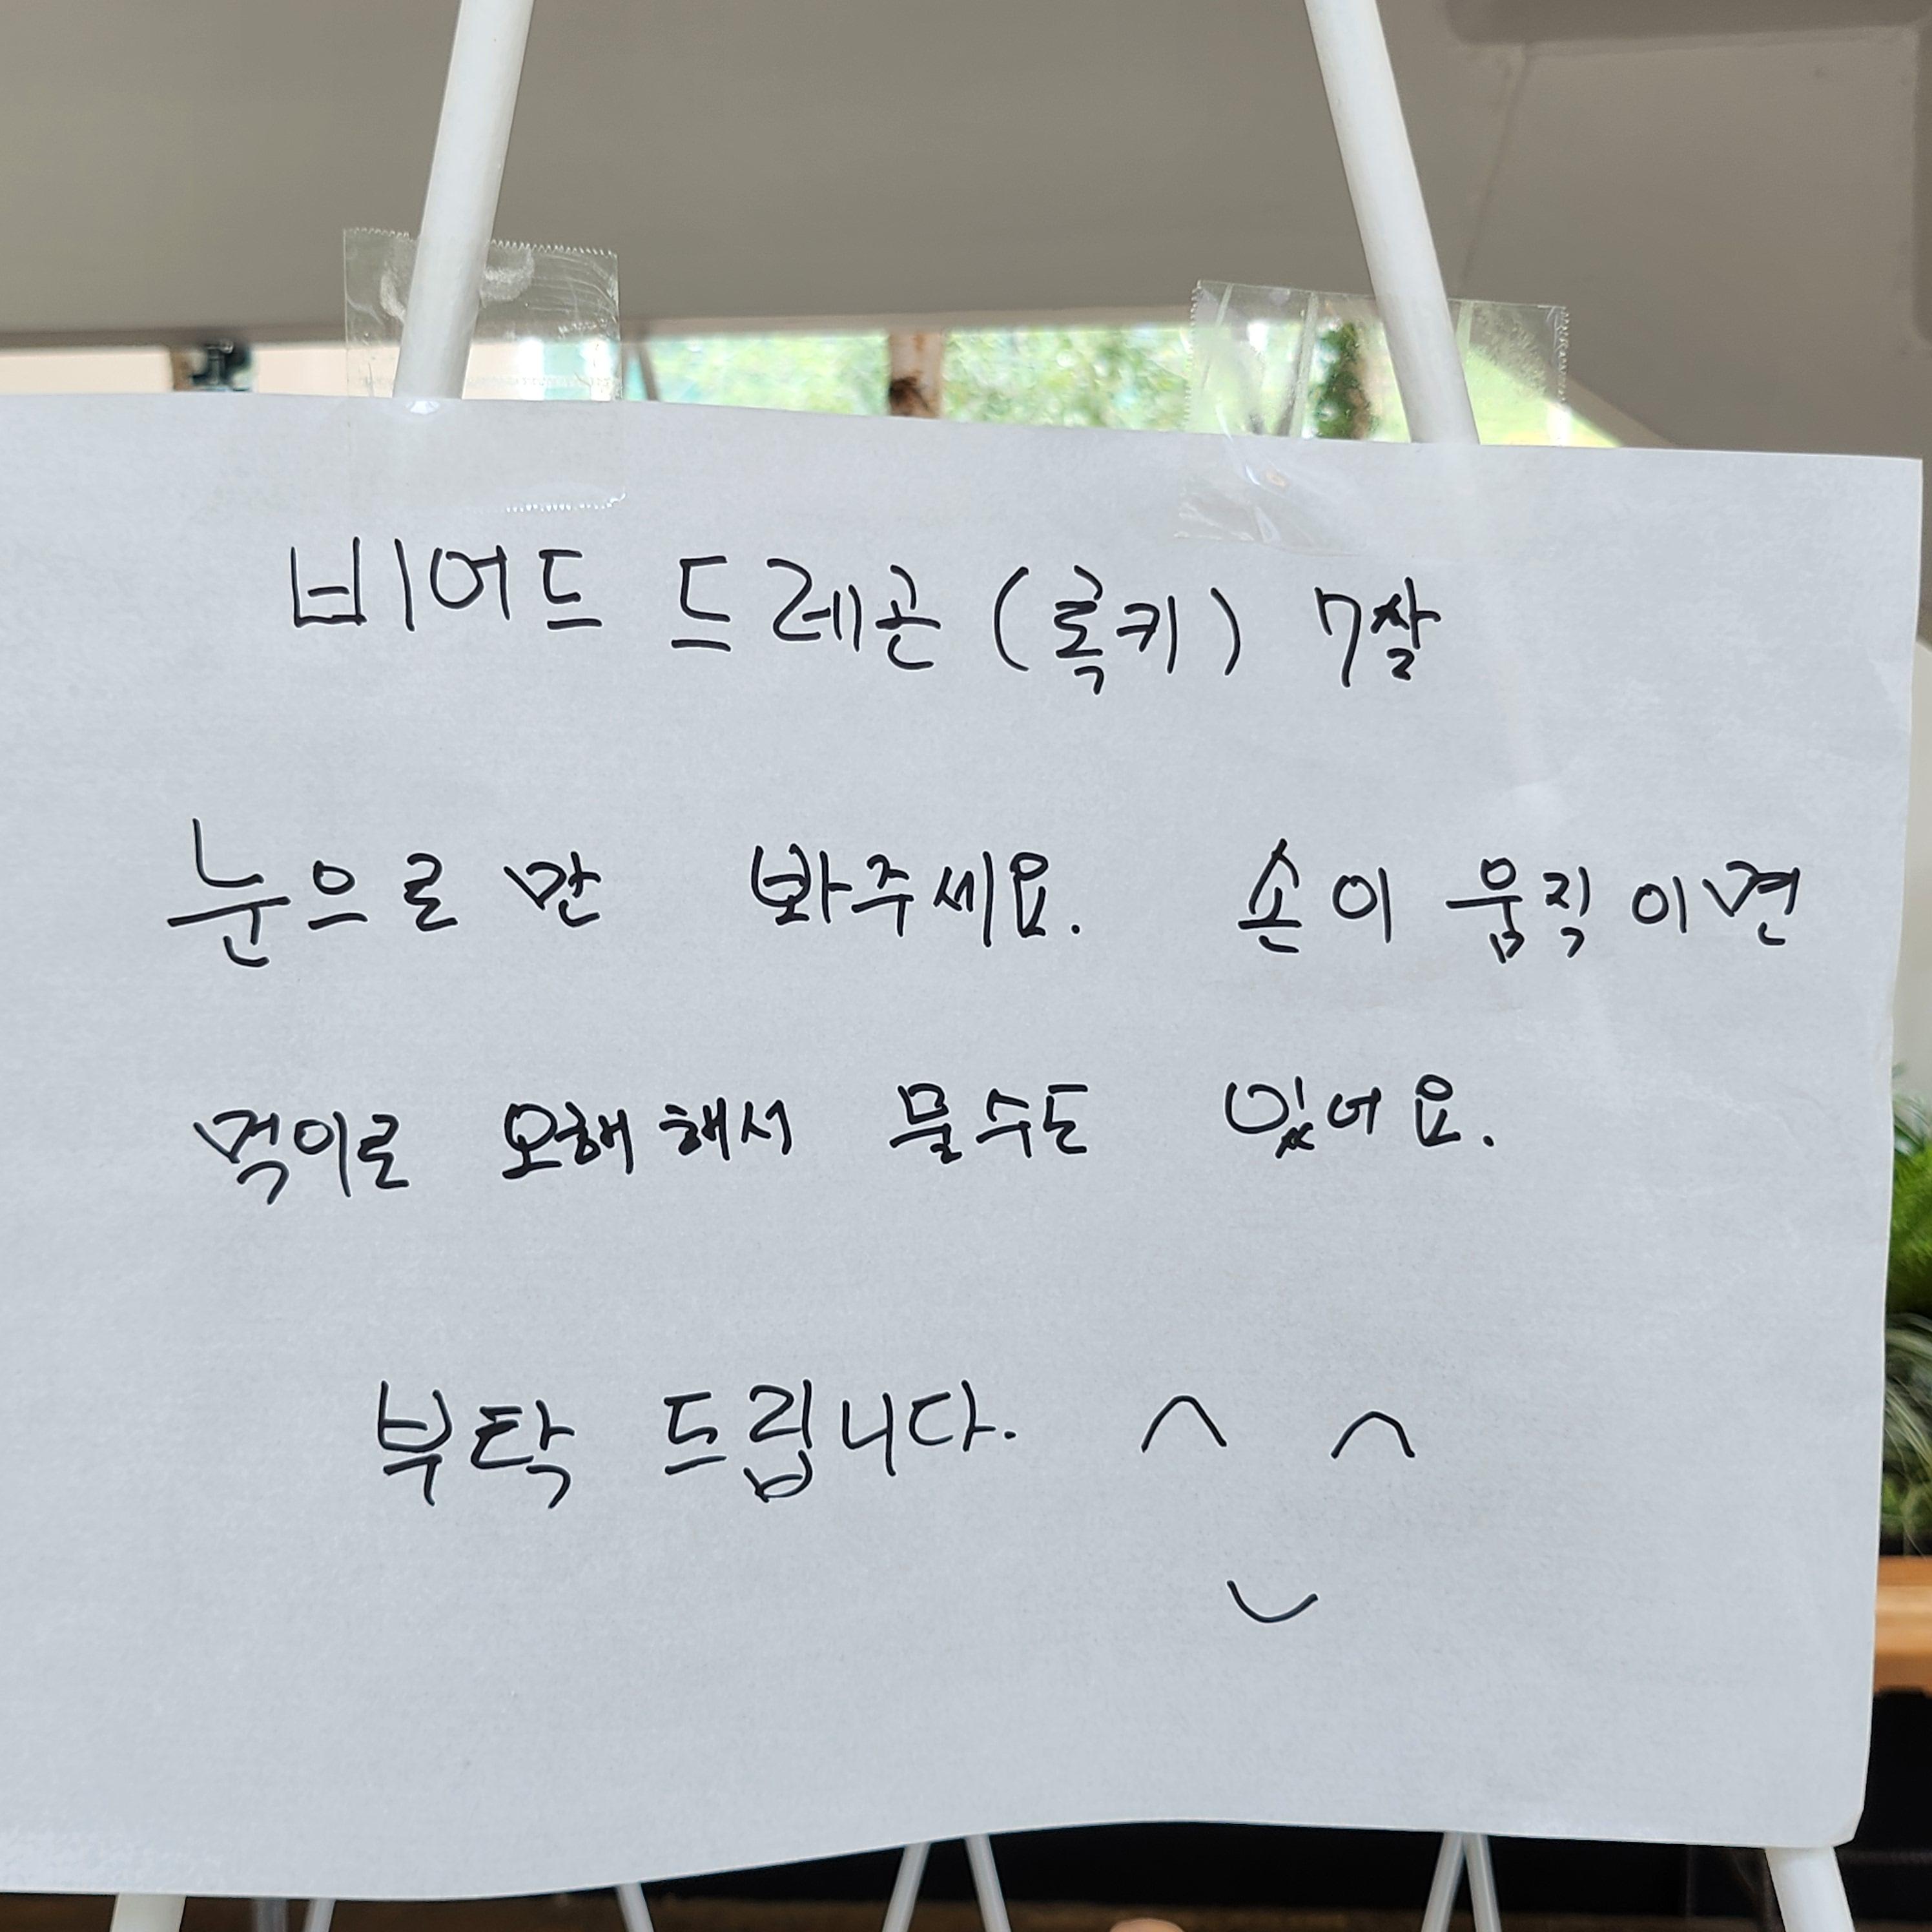 비어드 드레곤 (록키) 7살
눈으로만 봐주세요. 손이 움직이면
먹이로 오해해서 물수도 있어요.
부탁 드립니다. ^ ^